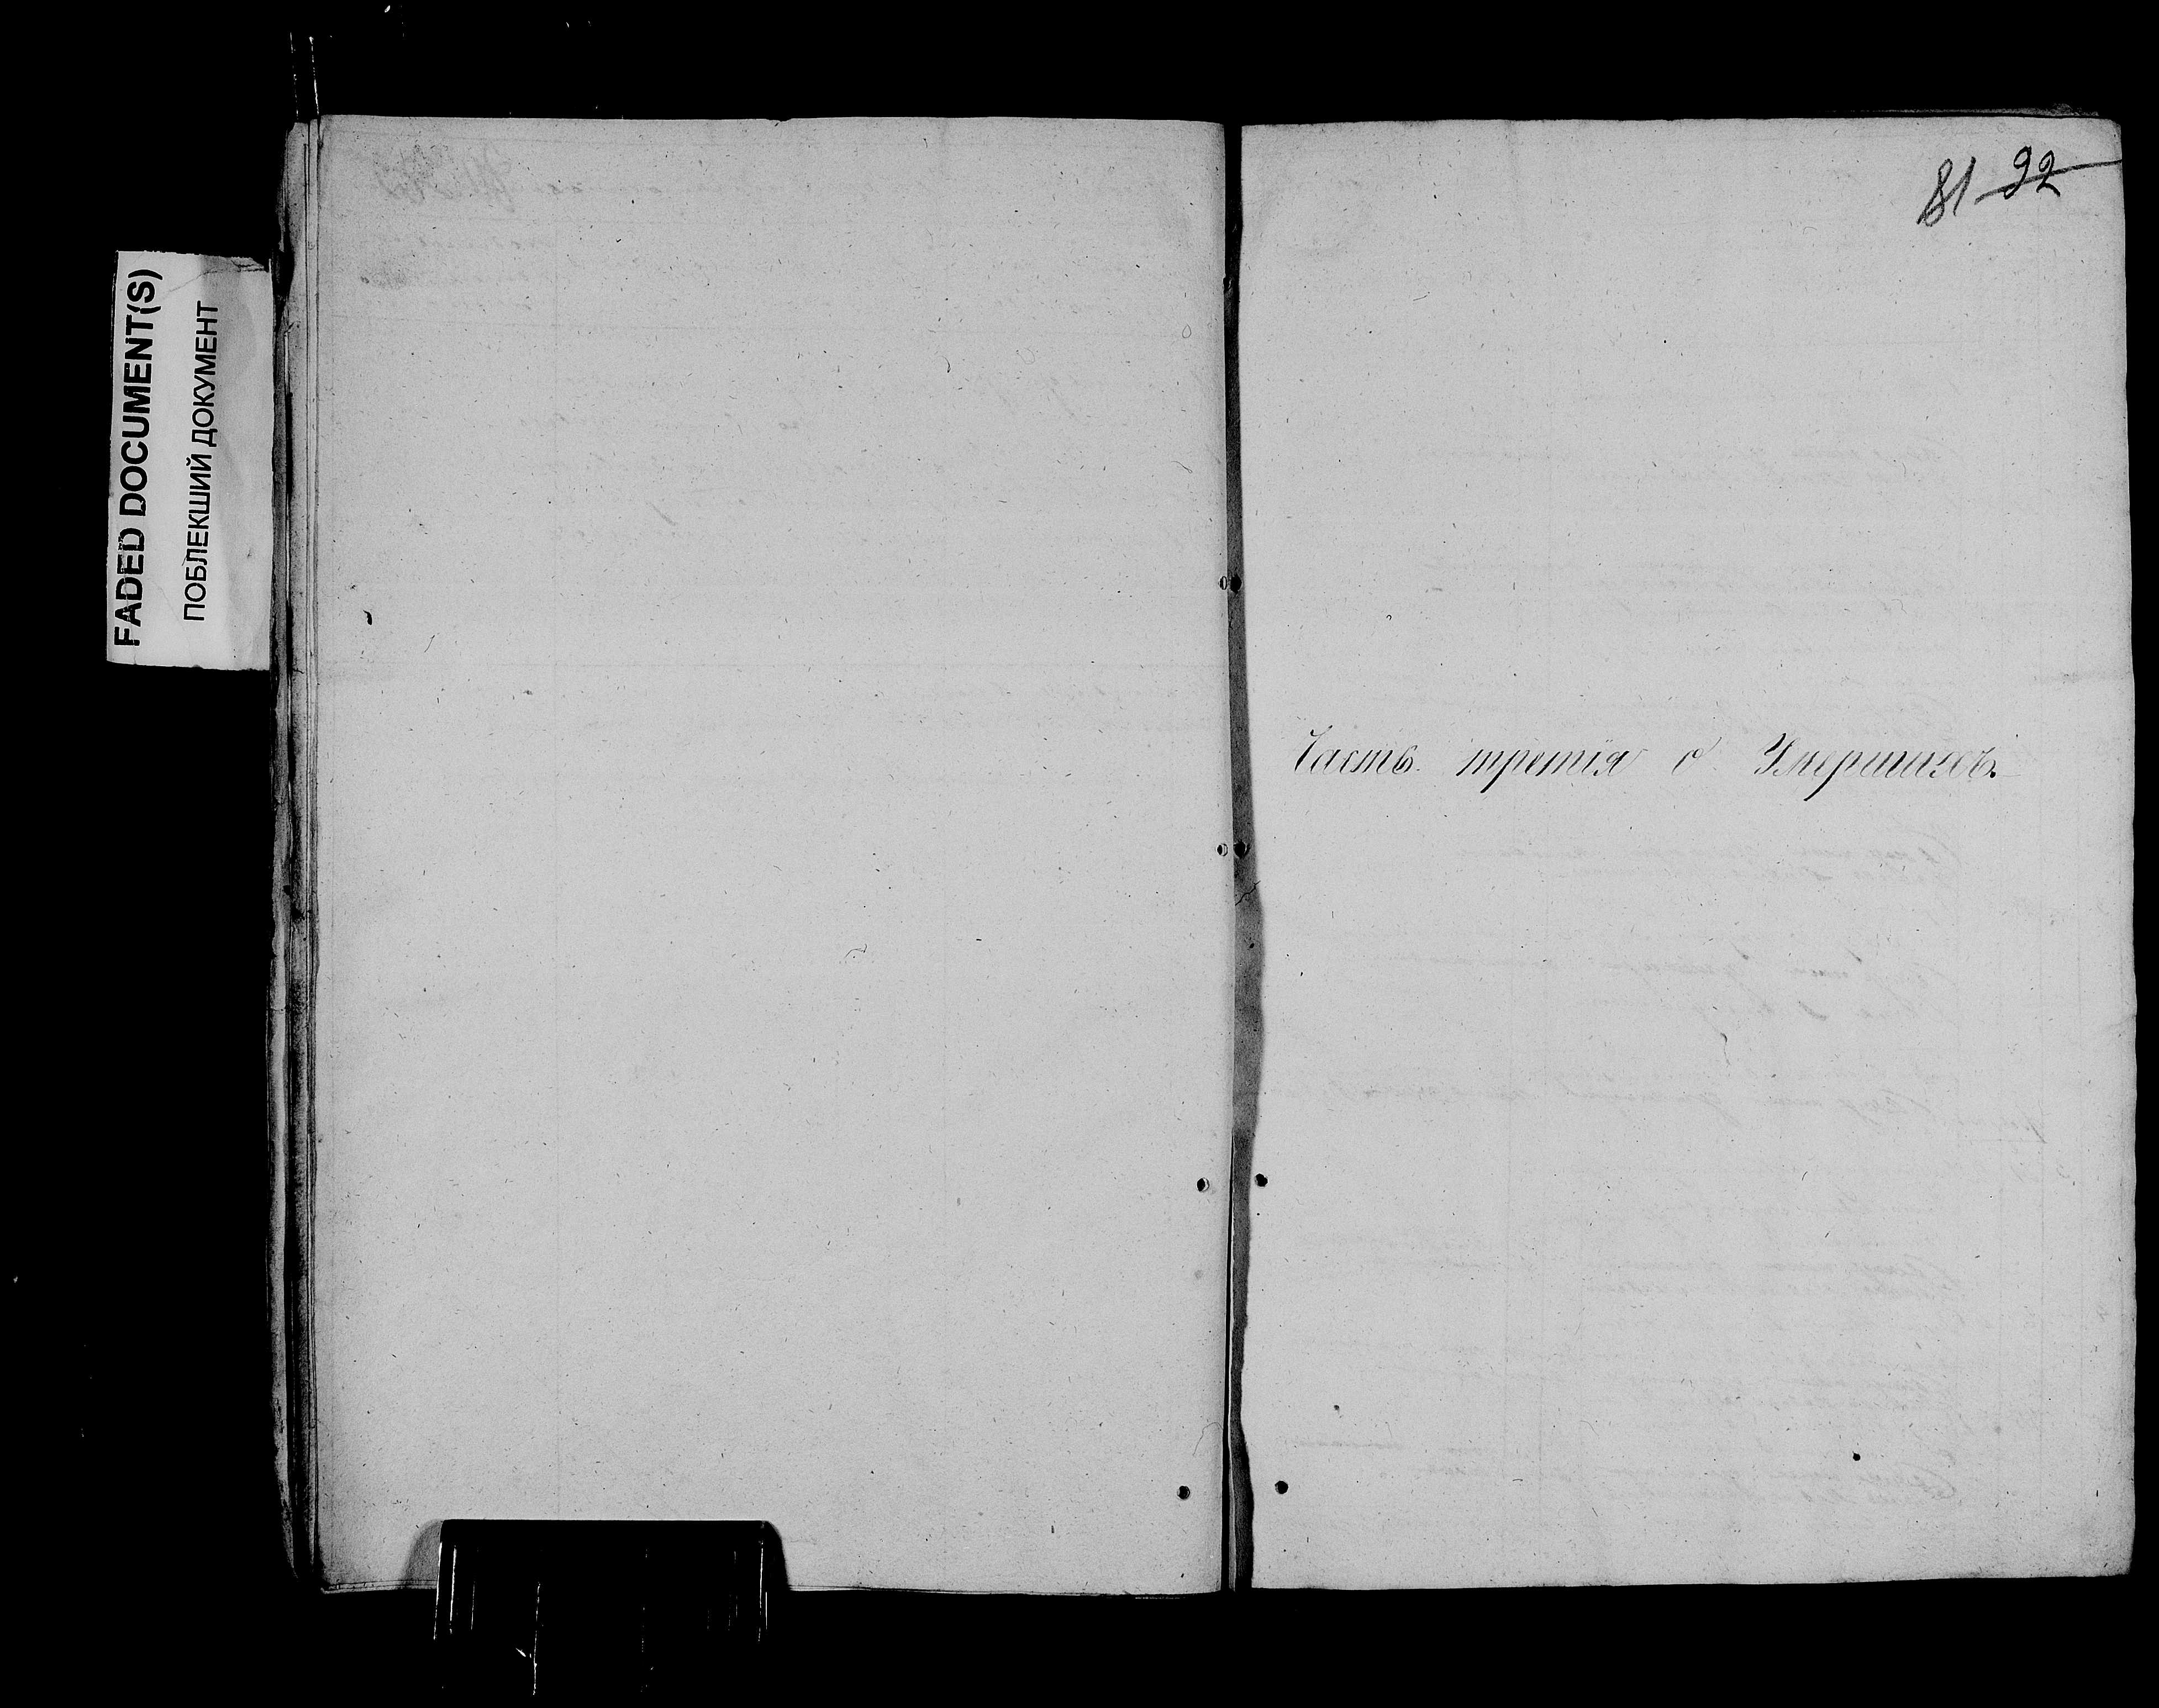 FADED DOCUMENT(S)
ПОБЛЕКШИЙ ДОКУМЕНТ
81 92
Часть третія о Умершихъ.